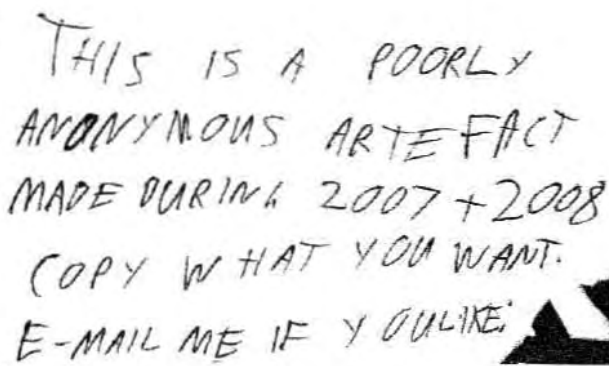 THIS IS A POORLY
ANONYMOUS ARTEFACT
MADE DURING 2007 + 2008
COPY WHAT YOU WANT.
E-MAIL ME IF YOU LIKE: